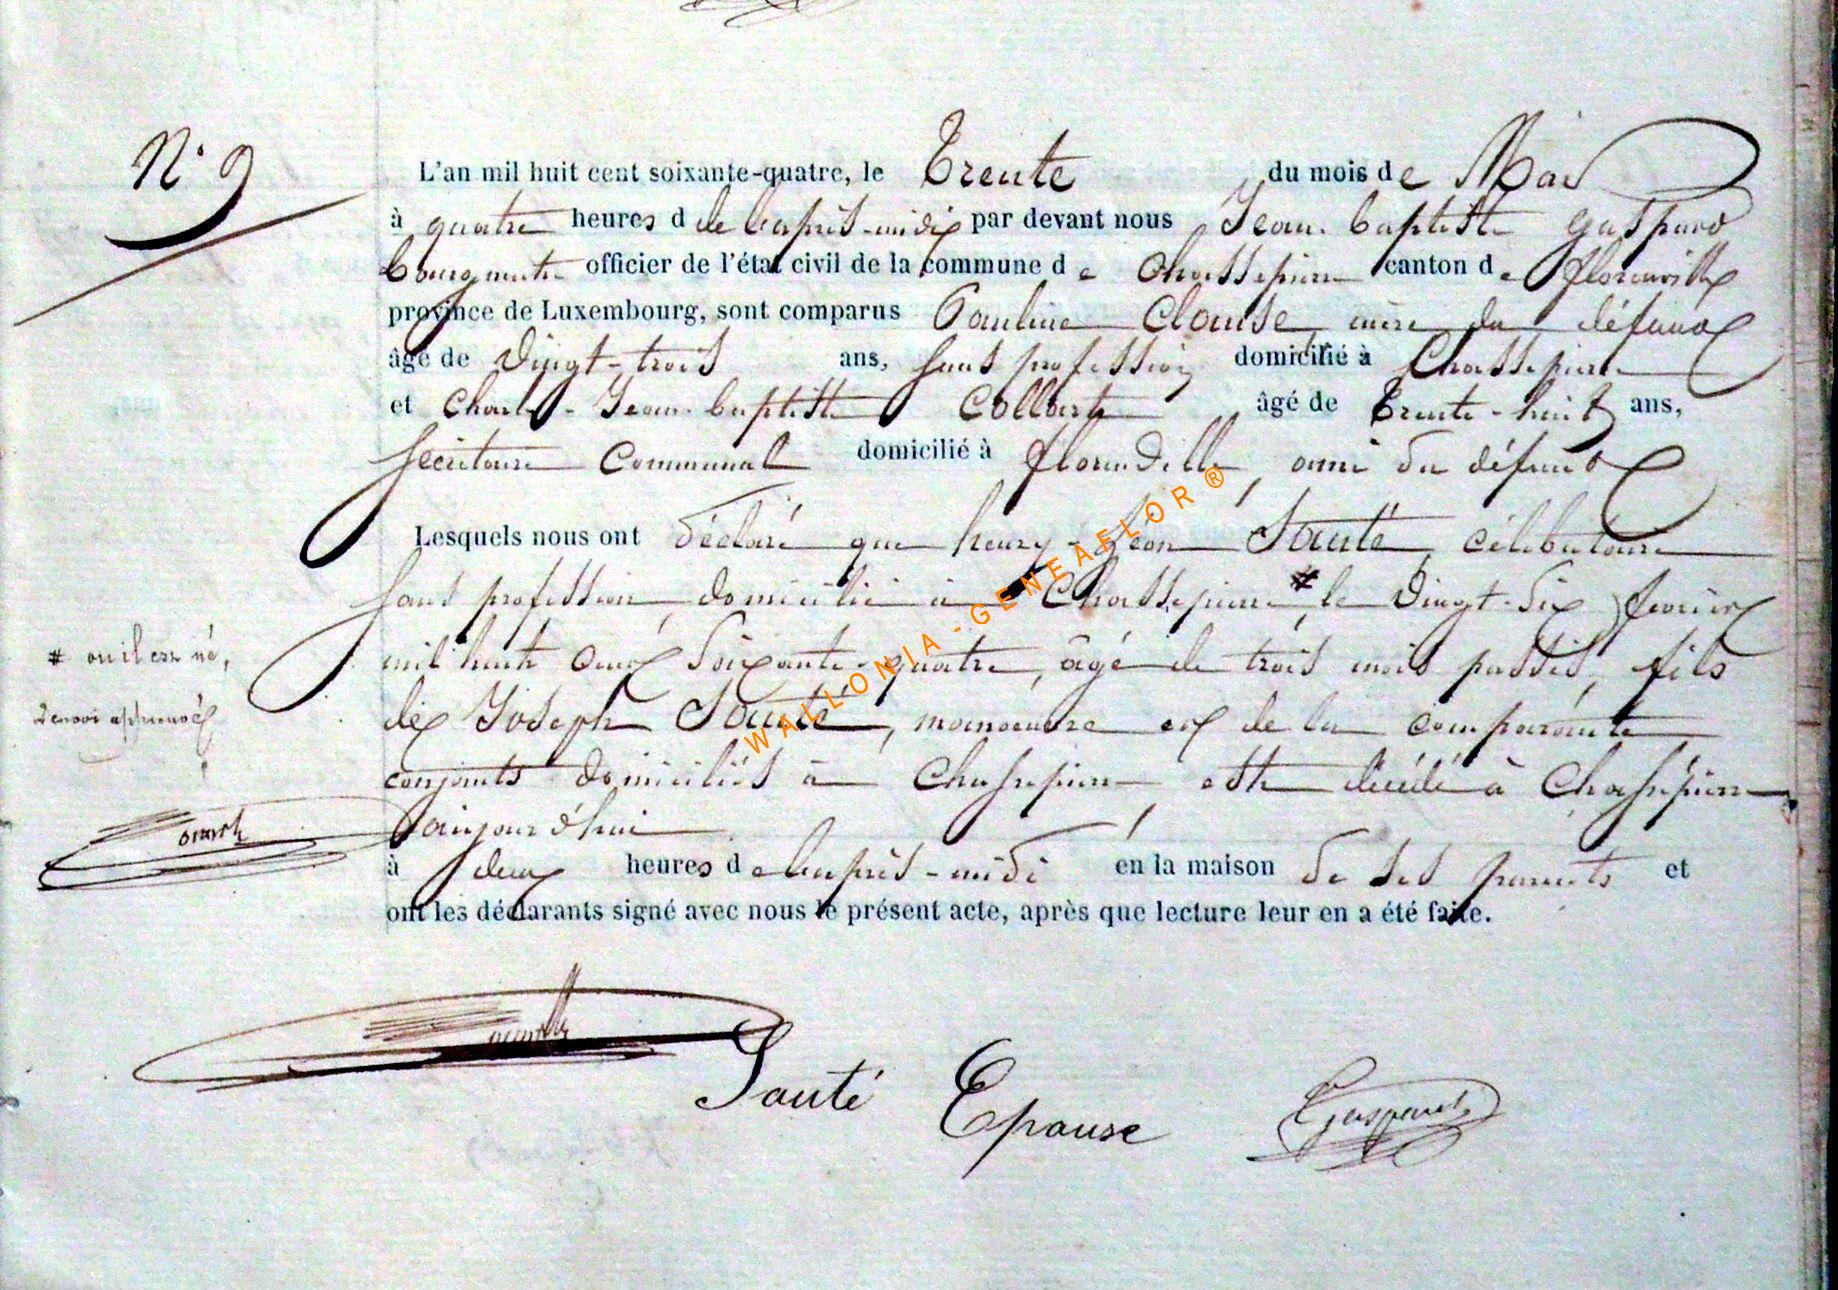 N° 9
L'an mil huit cent soixante-quatre, le Trente du mois de Mai
à quatre heures d de l'après-midi par devant nous Jean-baptiste Gaspard
bourgmestre officier de l'état civil de la commune de Chassepierre canton de florenville
province de Luxembourg, sont comparus Pauline Clause, mère du défunt
âgé de vingt-trois ans, sans profession domicilié à Chassepierre
et Charles-Jean-baptiste Collart âgé de Trente-huit ans,
secrétaire Communal domicilié à florenville, ami du défunt
Lesquels nous ont déclaré que henry-Léon Sauté, célibataire
sans profession, domicilié à Chassepierre # le vingt-six février
# ou il est né,
mil huit cent soixante-quatre, âgé de trois mois passés, fils
Renvoi approuvé
de Joseph Sauté, manoeuvre et de la comparante
conjoints domiciliés à Chassepierre est décédé à Chassepierre
aujourd'hui
à deux heures de l'après-midi en la maison de ses parents et
ont les déclarants signé avec nous le présent acte, après que lecture leur en a été faite.
Sauté Epouse Gaspard
WALLONIA-GENEAFLOR®